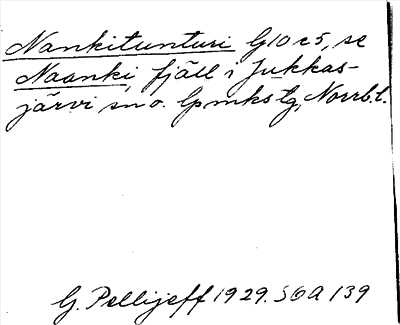 Nankitunturi G10c5, se
Naanki, fjäll i Jukkas-
järvi sn o. lpmkstg, Norrb.l.
G. Pellijeff 1929. SOA 139